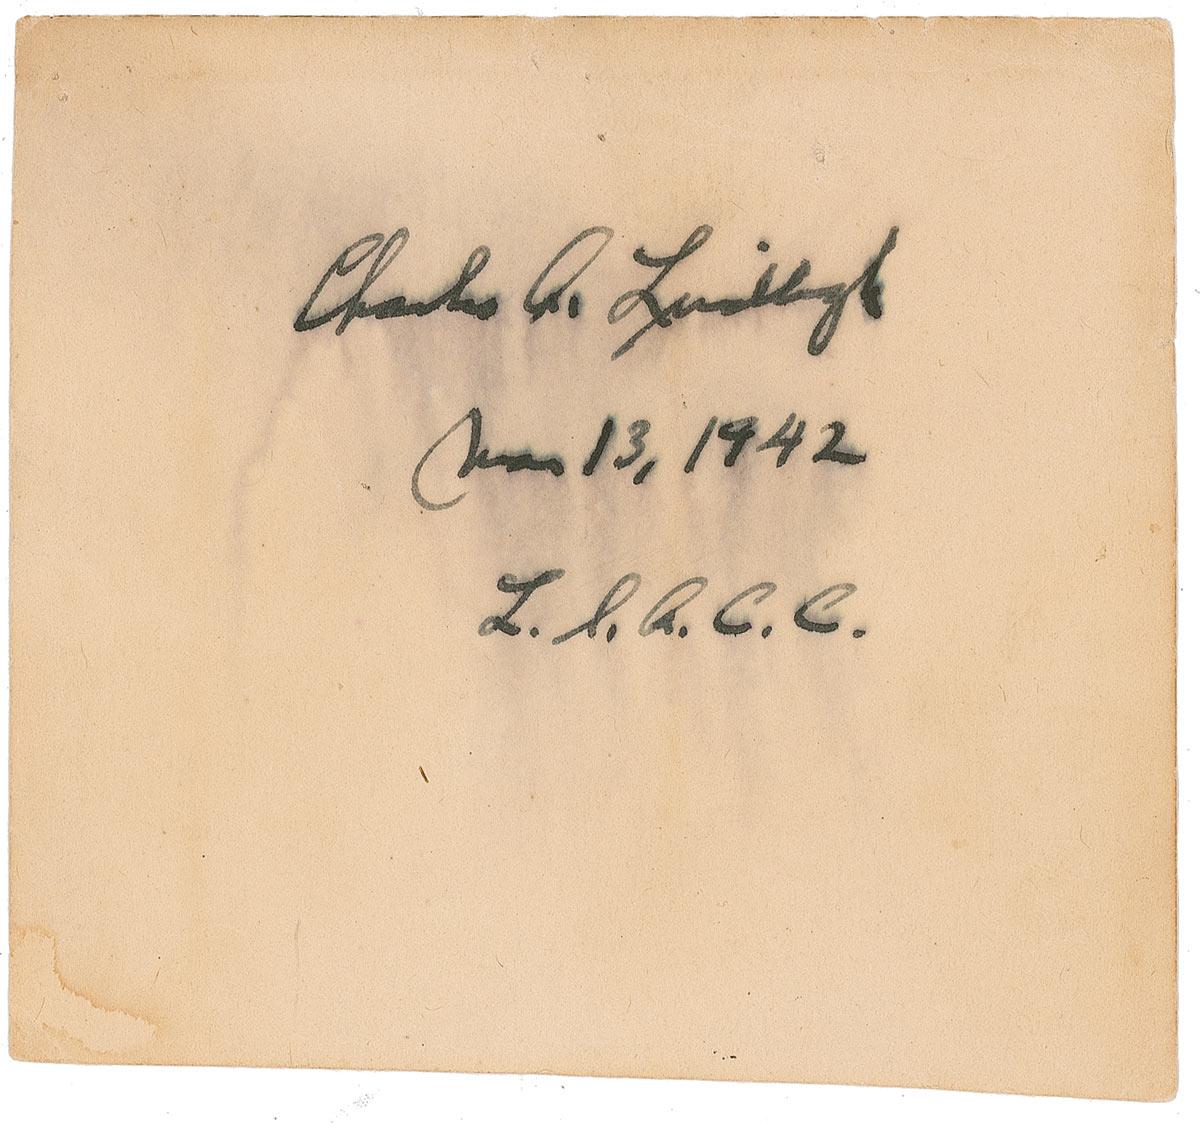 Charles A. Lindbergh
Mar 13, 1942
L. I. A. C. C.